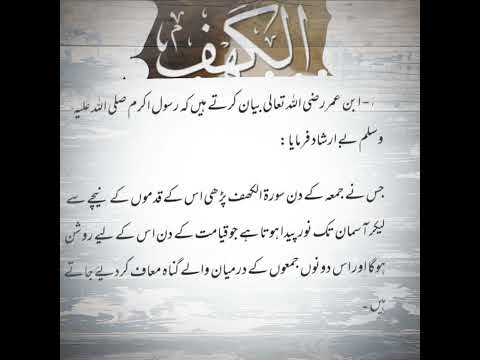 الكهف
۱- ابن عمر رضی اللہ تعالی بیان کرتے ہیں کہ رسول اکرم صلی اللہ علیہ
وسلم نے ارشاد فرمایا :
جس نے جمعہ کے دن سورۃ الکھف پڑھی اس کے قدموں کے نیچے سے
لیکر آسمان تک نور پیدا ہوتا ہے جو قیامت کے دن اس کے لیے روشن
ہوگا اور اس دونوں جمعوں کے درمیان والے گناہ معاف کر دیے جاتے
ہیں۔